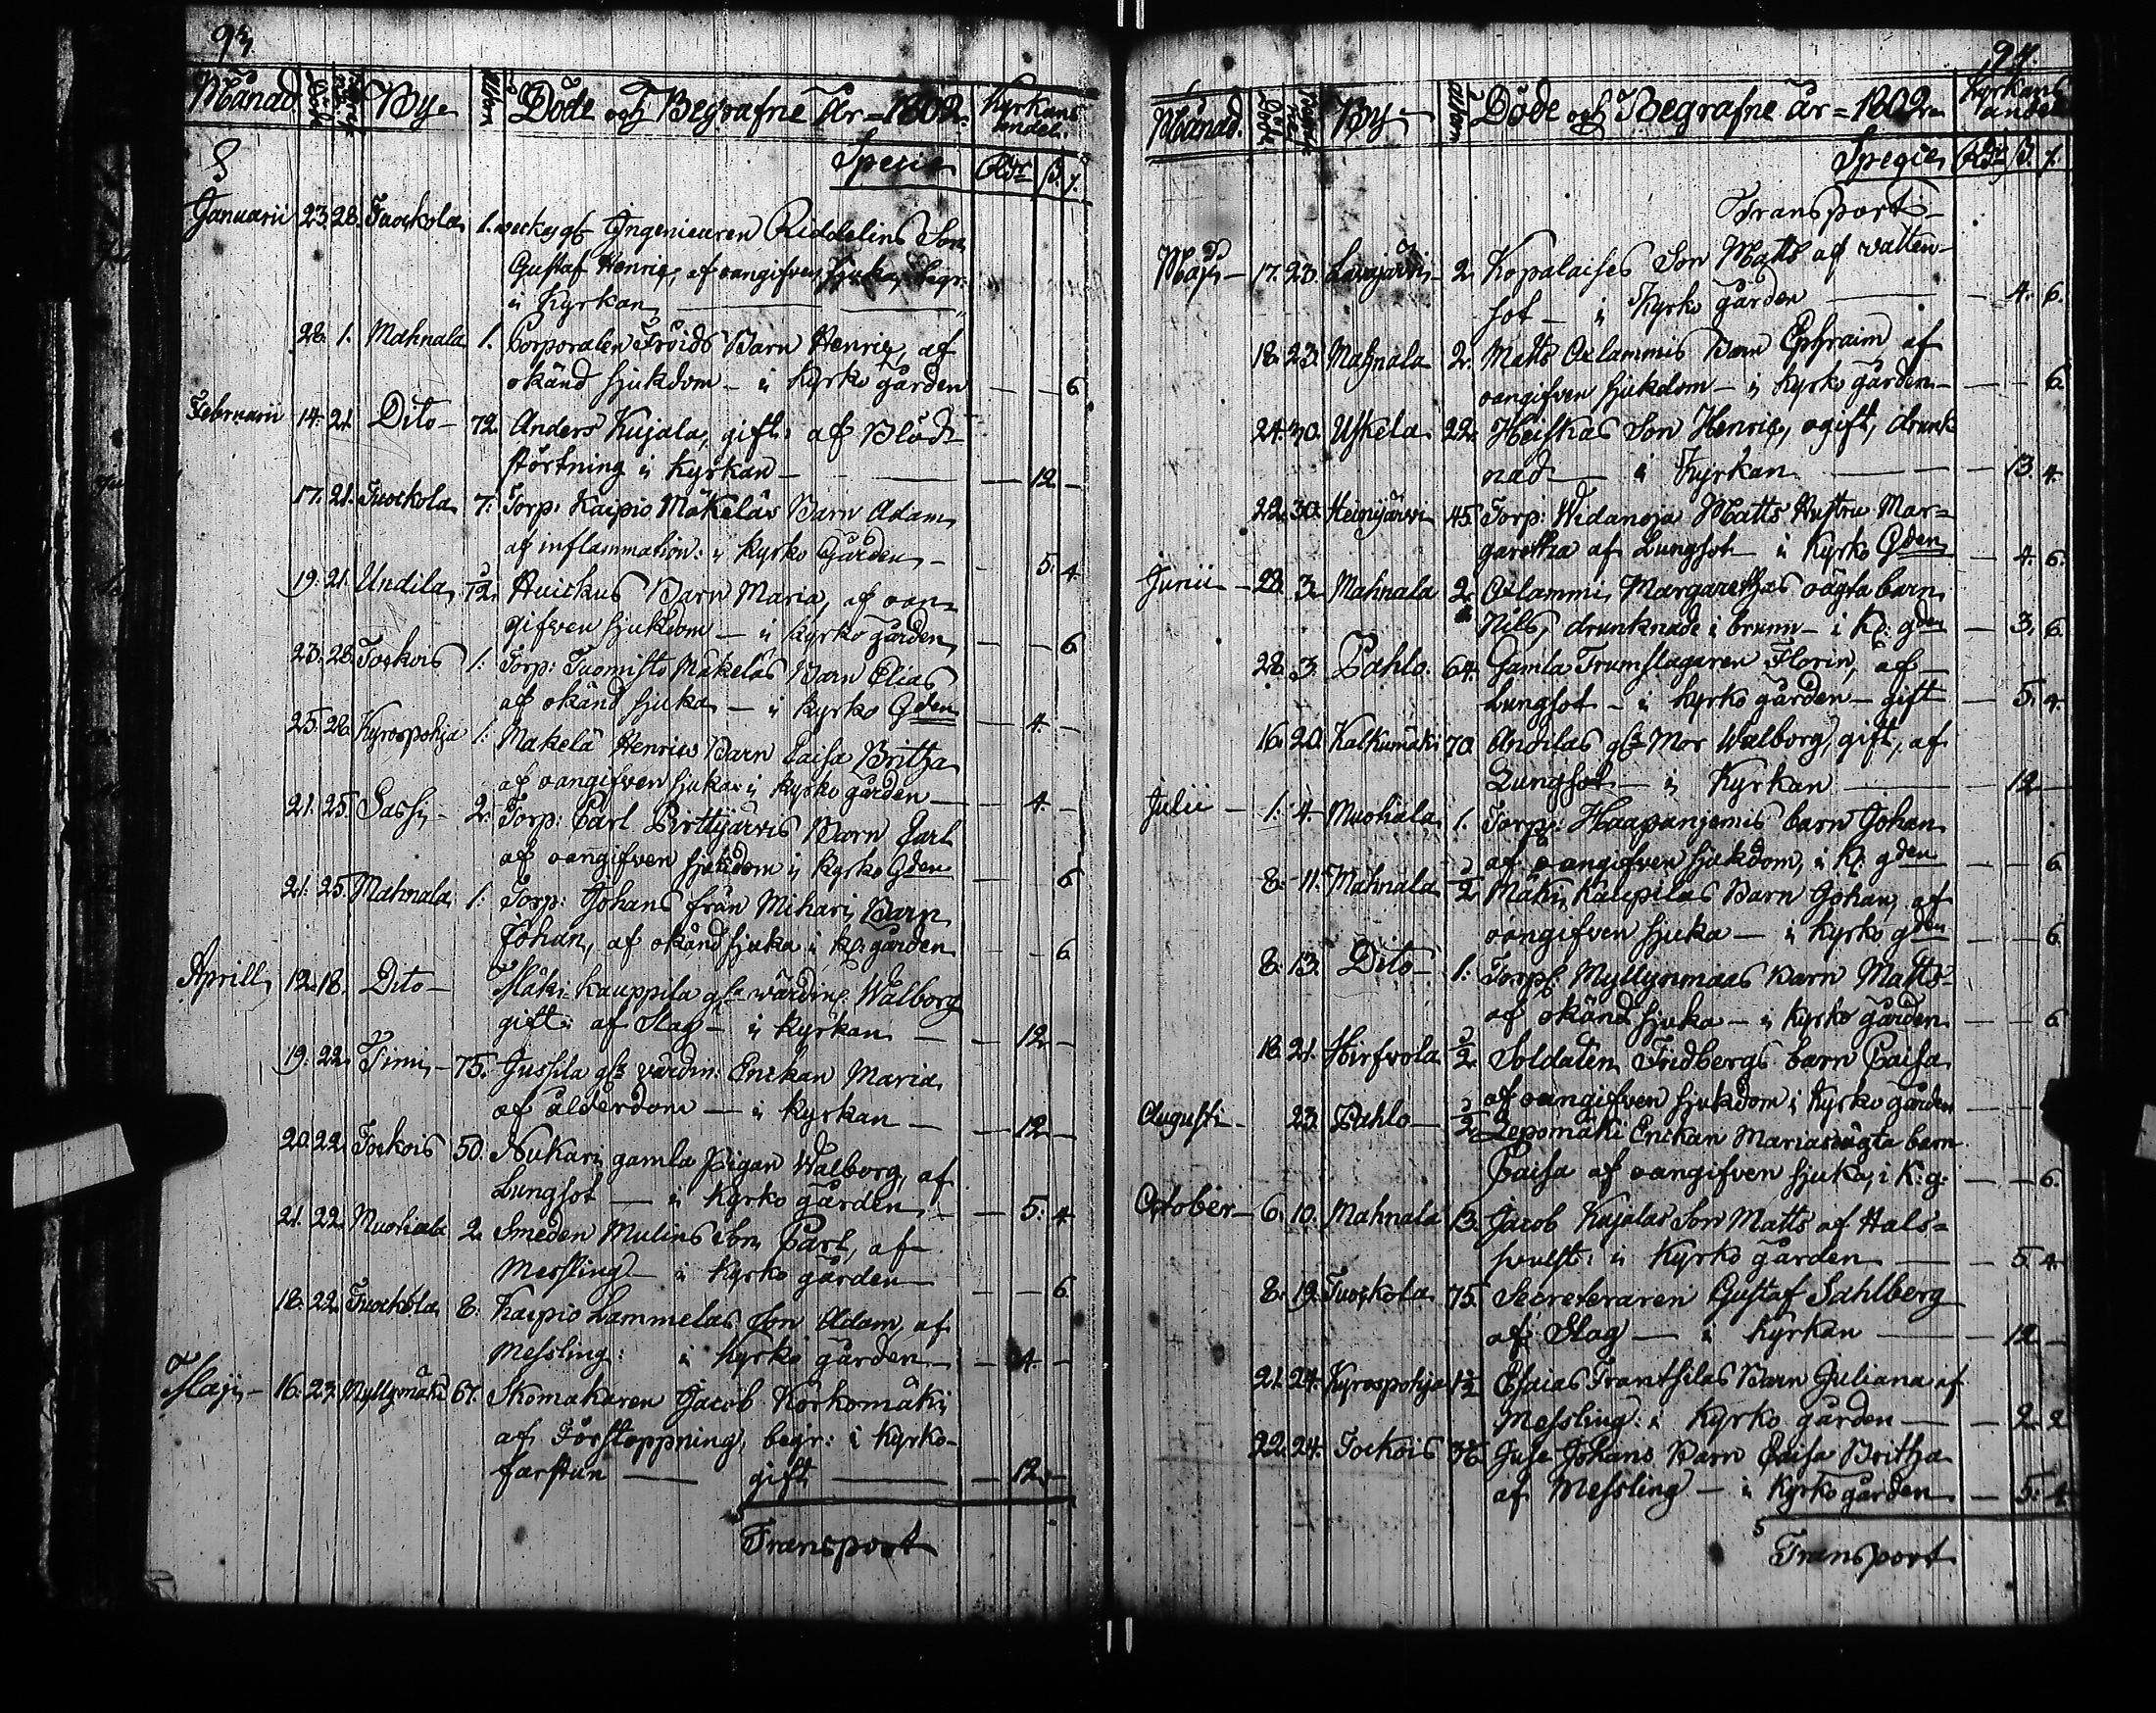 93.
Månad Döde Begrafne Bye Ålder Döde och Begrafne År = 1802. Kyrkans andel.
Specie Rdr ß. r.
Januarii 23. 28. Tuockola 1. weckas gl. Ingenieuren Riddelins Son
Gustaf Henric, af oangifven sjuka, begr:
i Kyrkan
28. 1. Mahnala 1. Corporalen Fröids Barn Henric, af
okänd sjukdom - i Kyrko gården — — 6
Februarii 14. 21. Dito - 72. Anders Kujala, gift: af Blod-
störtning i Kyrkan — — 12 —
17. 21. Tuockola 7. Torp: Kaipio Mäkeläs Barn Adam,
af inflammation: i Kyrko Gården — — 5. 4.
19. 21. Undila 3/12. Huickus Barn Maria, af oan-
gifven sjukdom — i Kyrko gården — — 6
23. 28. Tockois 1. Torp: Tuomisto Mäkeläs Barn Elias
af okänd sjuka — i Kyrko Gden — 4. —
25. 28. Kyrospohja 1. Mäkelä Henrics Barn Caisa Britha
af oangifven sjuka i Kyrko gården — — 4. —
21. 25. Sassi - 2. Torp: Carl Pirttijärvis Barn Carl
af oangifven sjukdom i Kyrko Gden — 6
21. 25. Mahnala 1. Torp: Johans från Mihari Barn
Johan, af okänd sjuka i Ko gården — — 6
Aprill 12. 18. Dito — Mäki-Kauppila gla värdin: Walborg
gift: af Slag — i Kyrkan — — 12 —
19. 22. Timi — 75. Jussila gla värdin: Enckan Maria
af ålderdom — i Kyrkan — — 12 —
20. 22. Tockois 50. Nukari gamla Pigan Walborg, af
Lungsot — i Kyrko gården — — 5. 4
21. 22. Muohiala 2. Smeden Mulins Son Carl, af
Messling — i Kyrko gården — — — 6
18. 22. Tuockola 8. Kaipio Lammelas Son Adam, af
Messling: i Kyrko gården — — 4. —
Maji — 16. 23. Myllymäki 67. Skomakaren Jacob Körkomäki
af Förstoppning, begr: i Kyrko-
farstun — gift — — 12. —
Transport
94.
Månad. Döde Begrafne By Ålder Döde och Begrafne år = 1802. Kyrkans andel
Specie Rdr ß. r.
Transport —
Maji — 17. 23. Lavajärvi — 2. Kopalaises Son Matts af vatten-
sot — i Kyrko gården — — 4. 6.
18. 23. Mahnala 2. Matts Oxlammis Barn Ephraim af
oangifven sjukdom — i Kyrko gården — — — 6.
24. 30. Uskela 22. Heiskas Son Henric, ogift, drunk-
nad — i Kyrkan — — 13. 4.
22. 30. Heinijärvi 45. Torp: Widanoja Matts Hustru Mar-
garetha af Lungsot — i Kyrko Gden — 4. 6.
Junii — 28. 3. Mahnala 2. Oxlammi Margarethas oägta barn
Nils, drunknade i brunn — i K: gden — 3. 6.
28. 3. Pahlo. 64. Gamla Trumslagaren Florin, af
Lungsot — i Kyrko gården — gift — 5. 4.
16. 20. Kalkumäki 70. Andilas gla Mor Walborg, gift, af
Lungsot — i Kyrkan — — 12 —
Julii — 1. 4. Muohiala 1. Torp: Haapanjemis barn Johan
af oangifven sjukdom, i K: gden — — 6.
8. 11. Mahnala 3/2 Mäki Kaupilas Barn Johan, af
oangifven sjuka — i Kyrko gden — — 6.
8. 13. Dito — 1. Torp: Myllynmaas Barn Matts
af okänd sjuka — i Kyrko gården — — 6
18. 21. Hirfvola 3/2 Soldaten Fridbergs barn Caisa
af oangifven sjukdom i Kyrko gården — —
Augusti — 23. Pahlo — 3/2 Lepomäki Enckan Marias oägta barn
Caisa af oangifven sjuka, i K: g: — — 6.
October — 6. 10. Mahnala 13. Jacob Kujalas Son Matts af Hals-
svulst: i Kyrko gården — — 5. 4
8. 19. Tuockola 75. Secreteraren Gustaf Sahlberg
af Slag — i Kyrkan — — 12 —
21. 24. Kyrospohja 1 1/2 Esaias Frantsilas Barn Juliana af
Messling: i Kyrko gården — — 2. 2
22. 24. Tockois 3/6 Juse Johans Barn Caisa Britha
af Messling — i Kyrko gården — — 5. 4
Transport